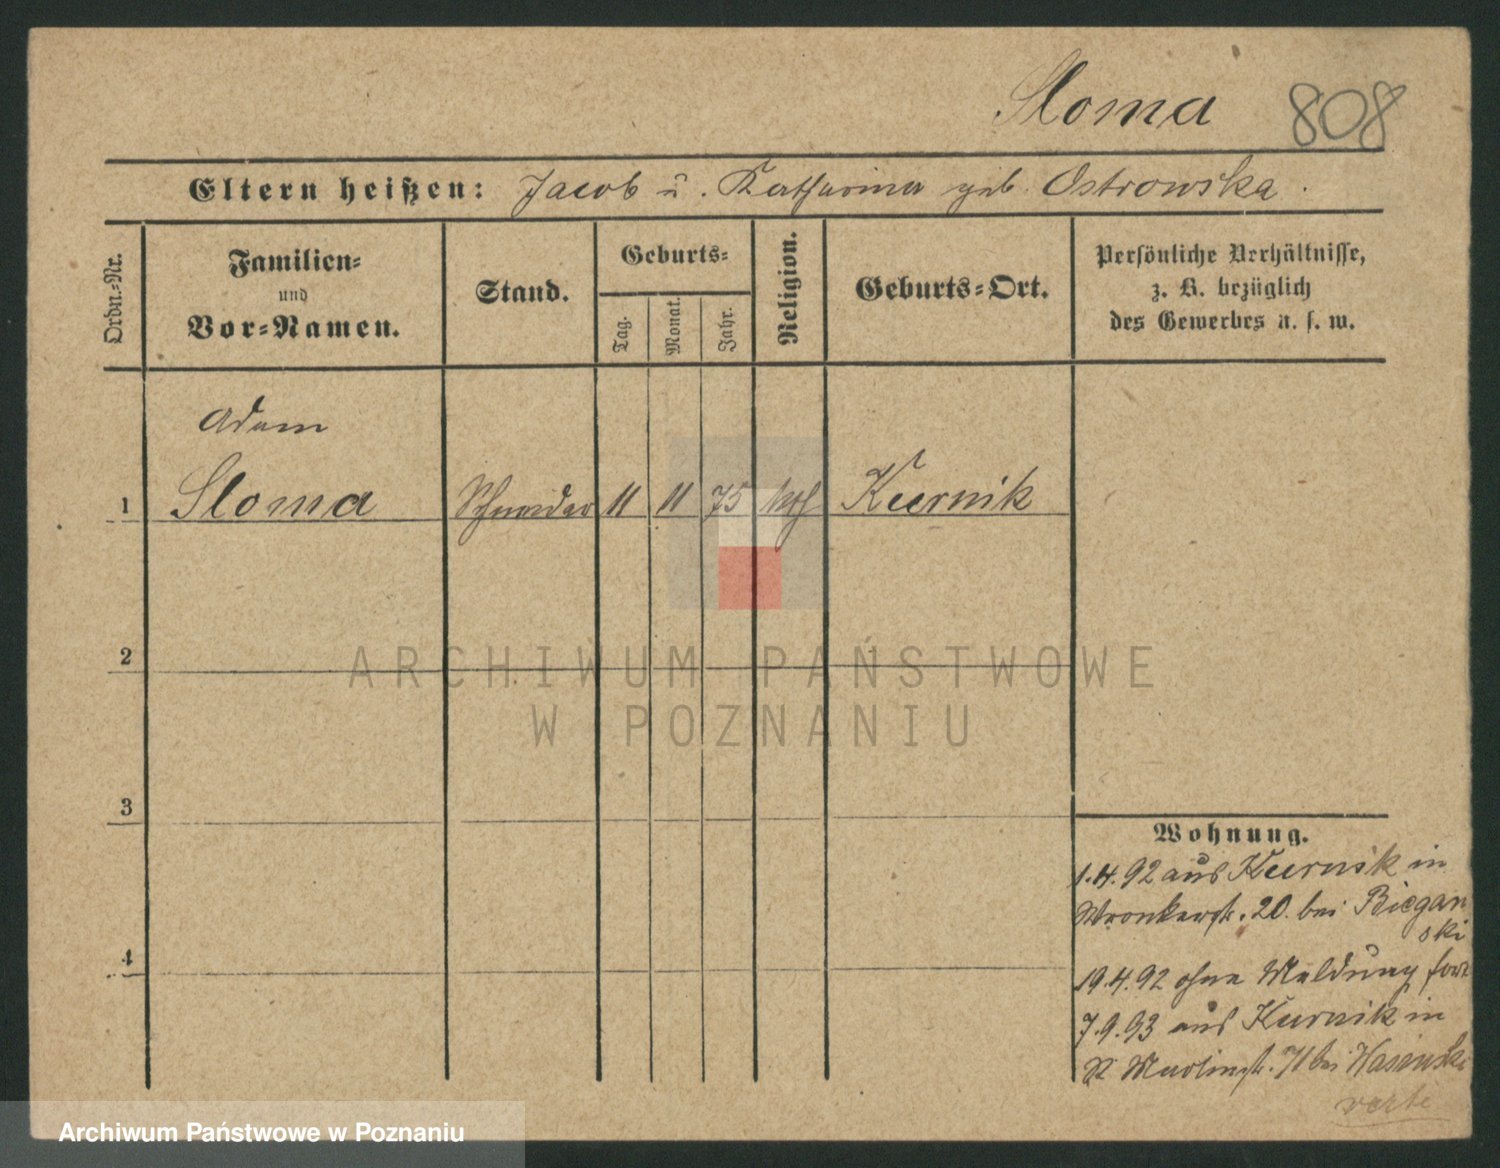 Sloma 808
Eltern heißen: Jacob u. Katharina geb. Ostrowska.
Ordn.-Nr.
Familien-
und
Vor-Namen.
Stand.
Geburts-
Tag.
Monat.
Jahr.
Religion.
Geburts-Ort.
Persönliche Verhältnisse,
z. B. bezüglich
des Gewerbes u. s. w.
Adam
1 Sloma Schneider 11 11 75 kth Kurnik
2
ARCHIWUM PAŃSTWOWE
W POZNANIU
3
4
Wohnung.
1.4.92 aus Kurnik in
Wronkerstr. 20. bei Biegan
ski
19.4.92 ohne Meldung fort
7.9.93 aus Kurnik in
St Martinstr. 71 bei
verte
Archiwum Państwowe w Poznaniu